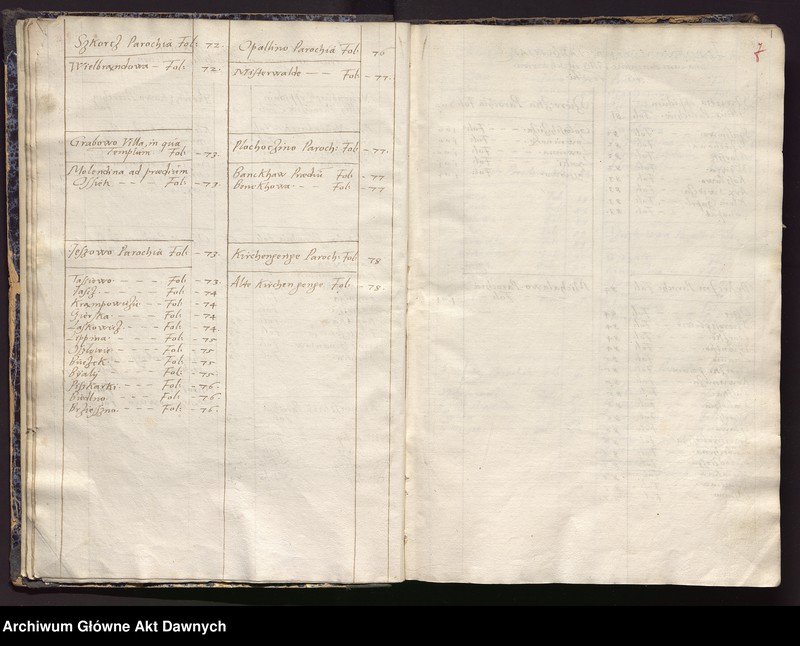 Szkorcz Parochia Fol: 72.
Wielbrandowa - Fol: - 72.
Grabowo Villa, in qua
templum Fol: - 73.
Molendina ad prædium
Ossiek - - - Fol: - 73.
Jeszowo Parochia Fol: - 73.
Tassiewo - - - Fol: - 73
- - - Fol: - 74
- - - Fol: - 74
- - - Fol: - 74
Laskowicz - - - Fol: - 74
Lippina - - - Fol: - 75
- - - Fol: - 75
- - - Fol: - 75
Byały - - - Fol: - 75
Piskarki - - - Fol: - 76.
Biedlno - - - Fol: - 76.
- - - Fol: - 76.
Opallino Parochia Fol: 76
Misterwalde - - Fol: - 77.
Plochoczino Paroch: Fol: - 77.
Banckhaw Prædiũ Fol: - 77
Benckhowa - - Fol: - 77
Kirchengenpe Paroch: Fol: 78
Alte Kirchengenpe Fol: - 78.
7
Archiwum Główne Akt Dawnych